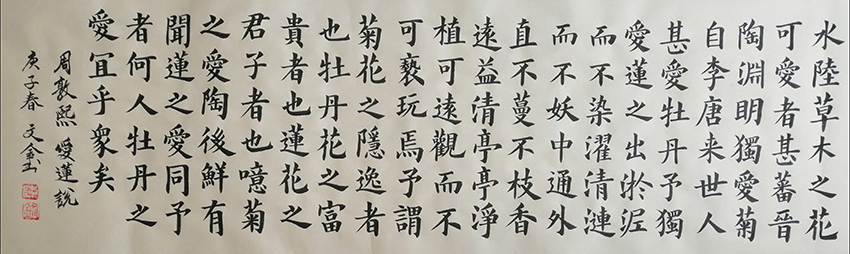 水陸草木之花
可愛者甚蕃晋
陶淵明獨愛菊
自李唐来世人
甚愛牡丹予獨
愛蓮之出淤泥
而不染濯清漣
而不妖中通外
直不蔓不枝香
遠益清亭亭淨
植可遠觀而不
可褻玩焉予謂
菊花之隱逸者
也牡丹花之富
貴者也蓮花之
君子者也噫菊
之愛陶後鮮有
聞蓮之愛同予
者何人牡丹之
愛宜乎衆矣
周敦熙 愛蓮說
庚子春